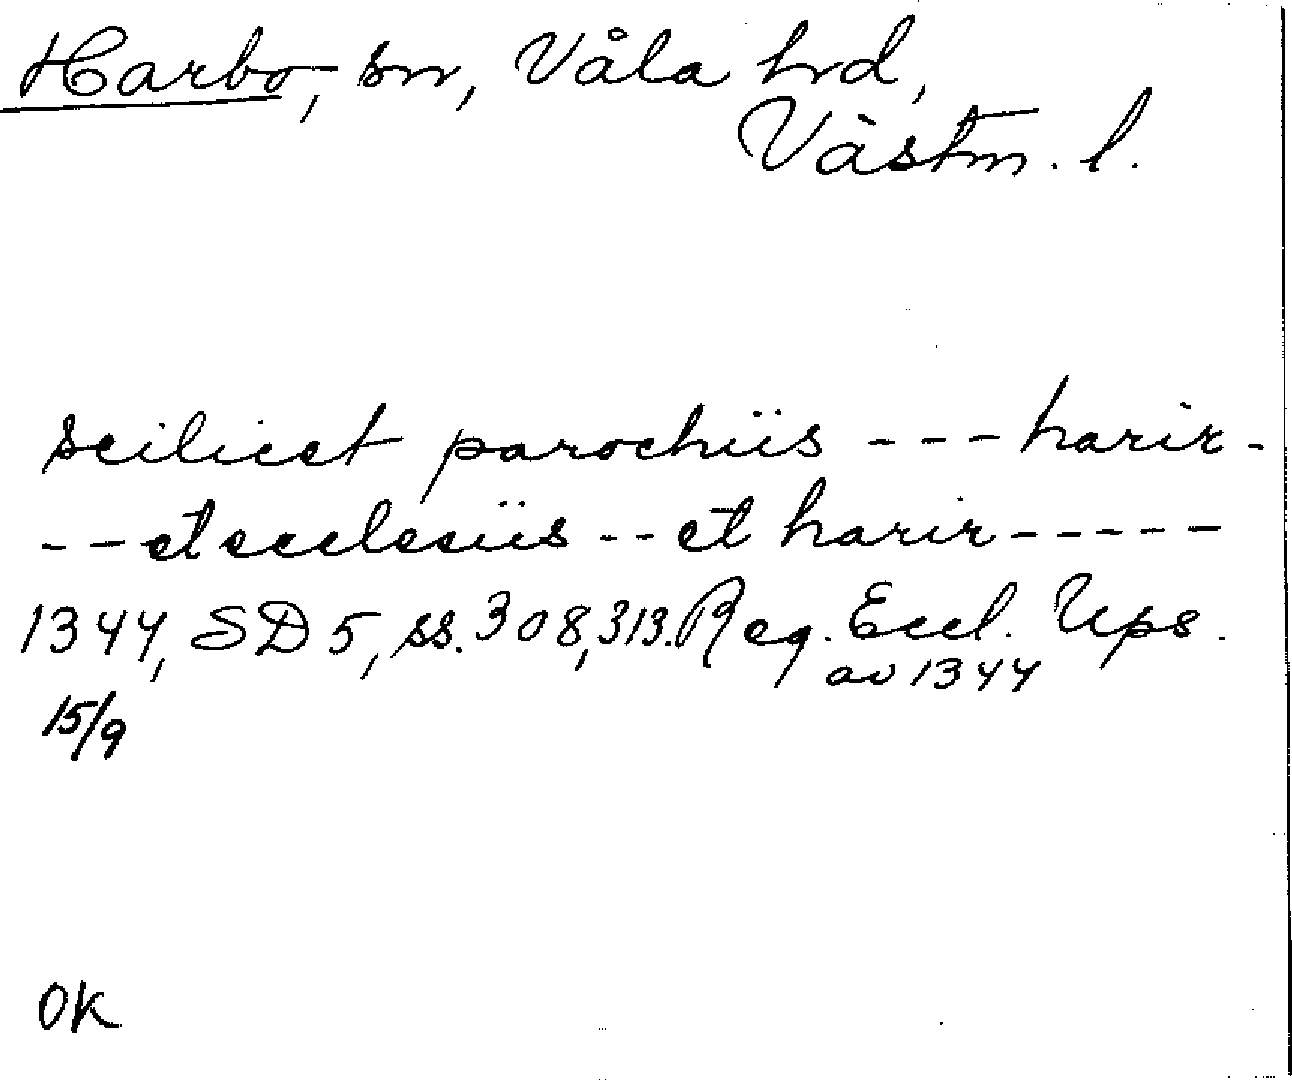 Harbo, sn, Våla hrd,
Västm. l.
scilicet parochiis --- harir-
-- et ecclesiis -- et harir -----
1344, SD 5, ss. 308, 313. Reg. Eccl. Ups.
av 1344
15/9
OK